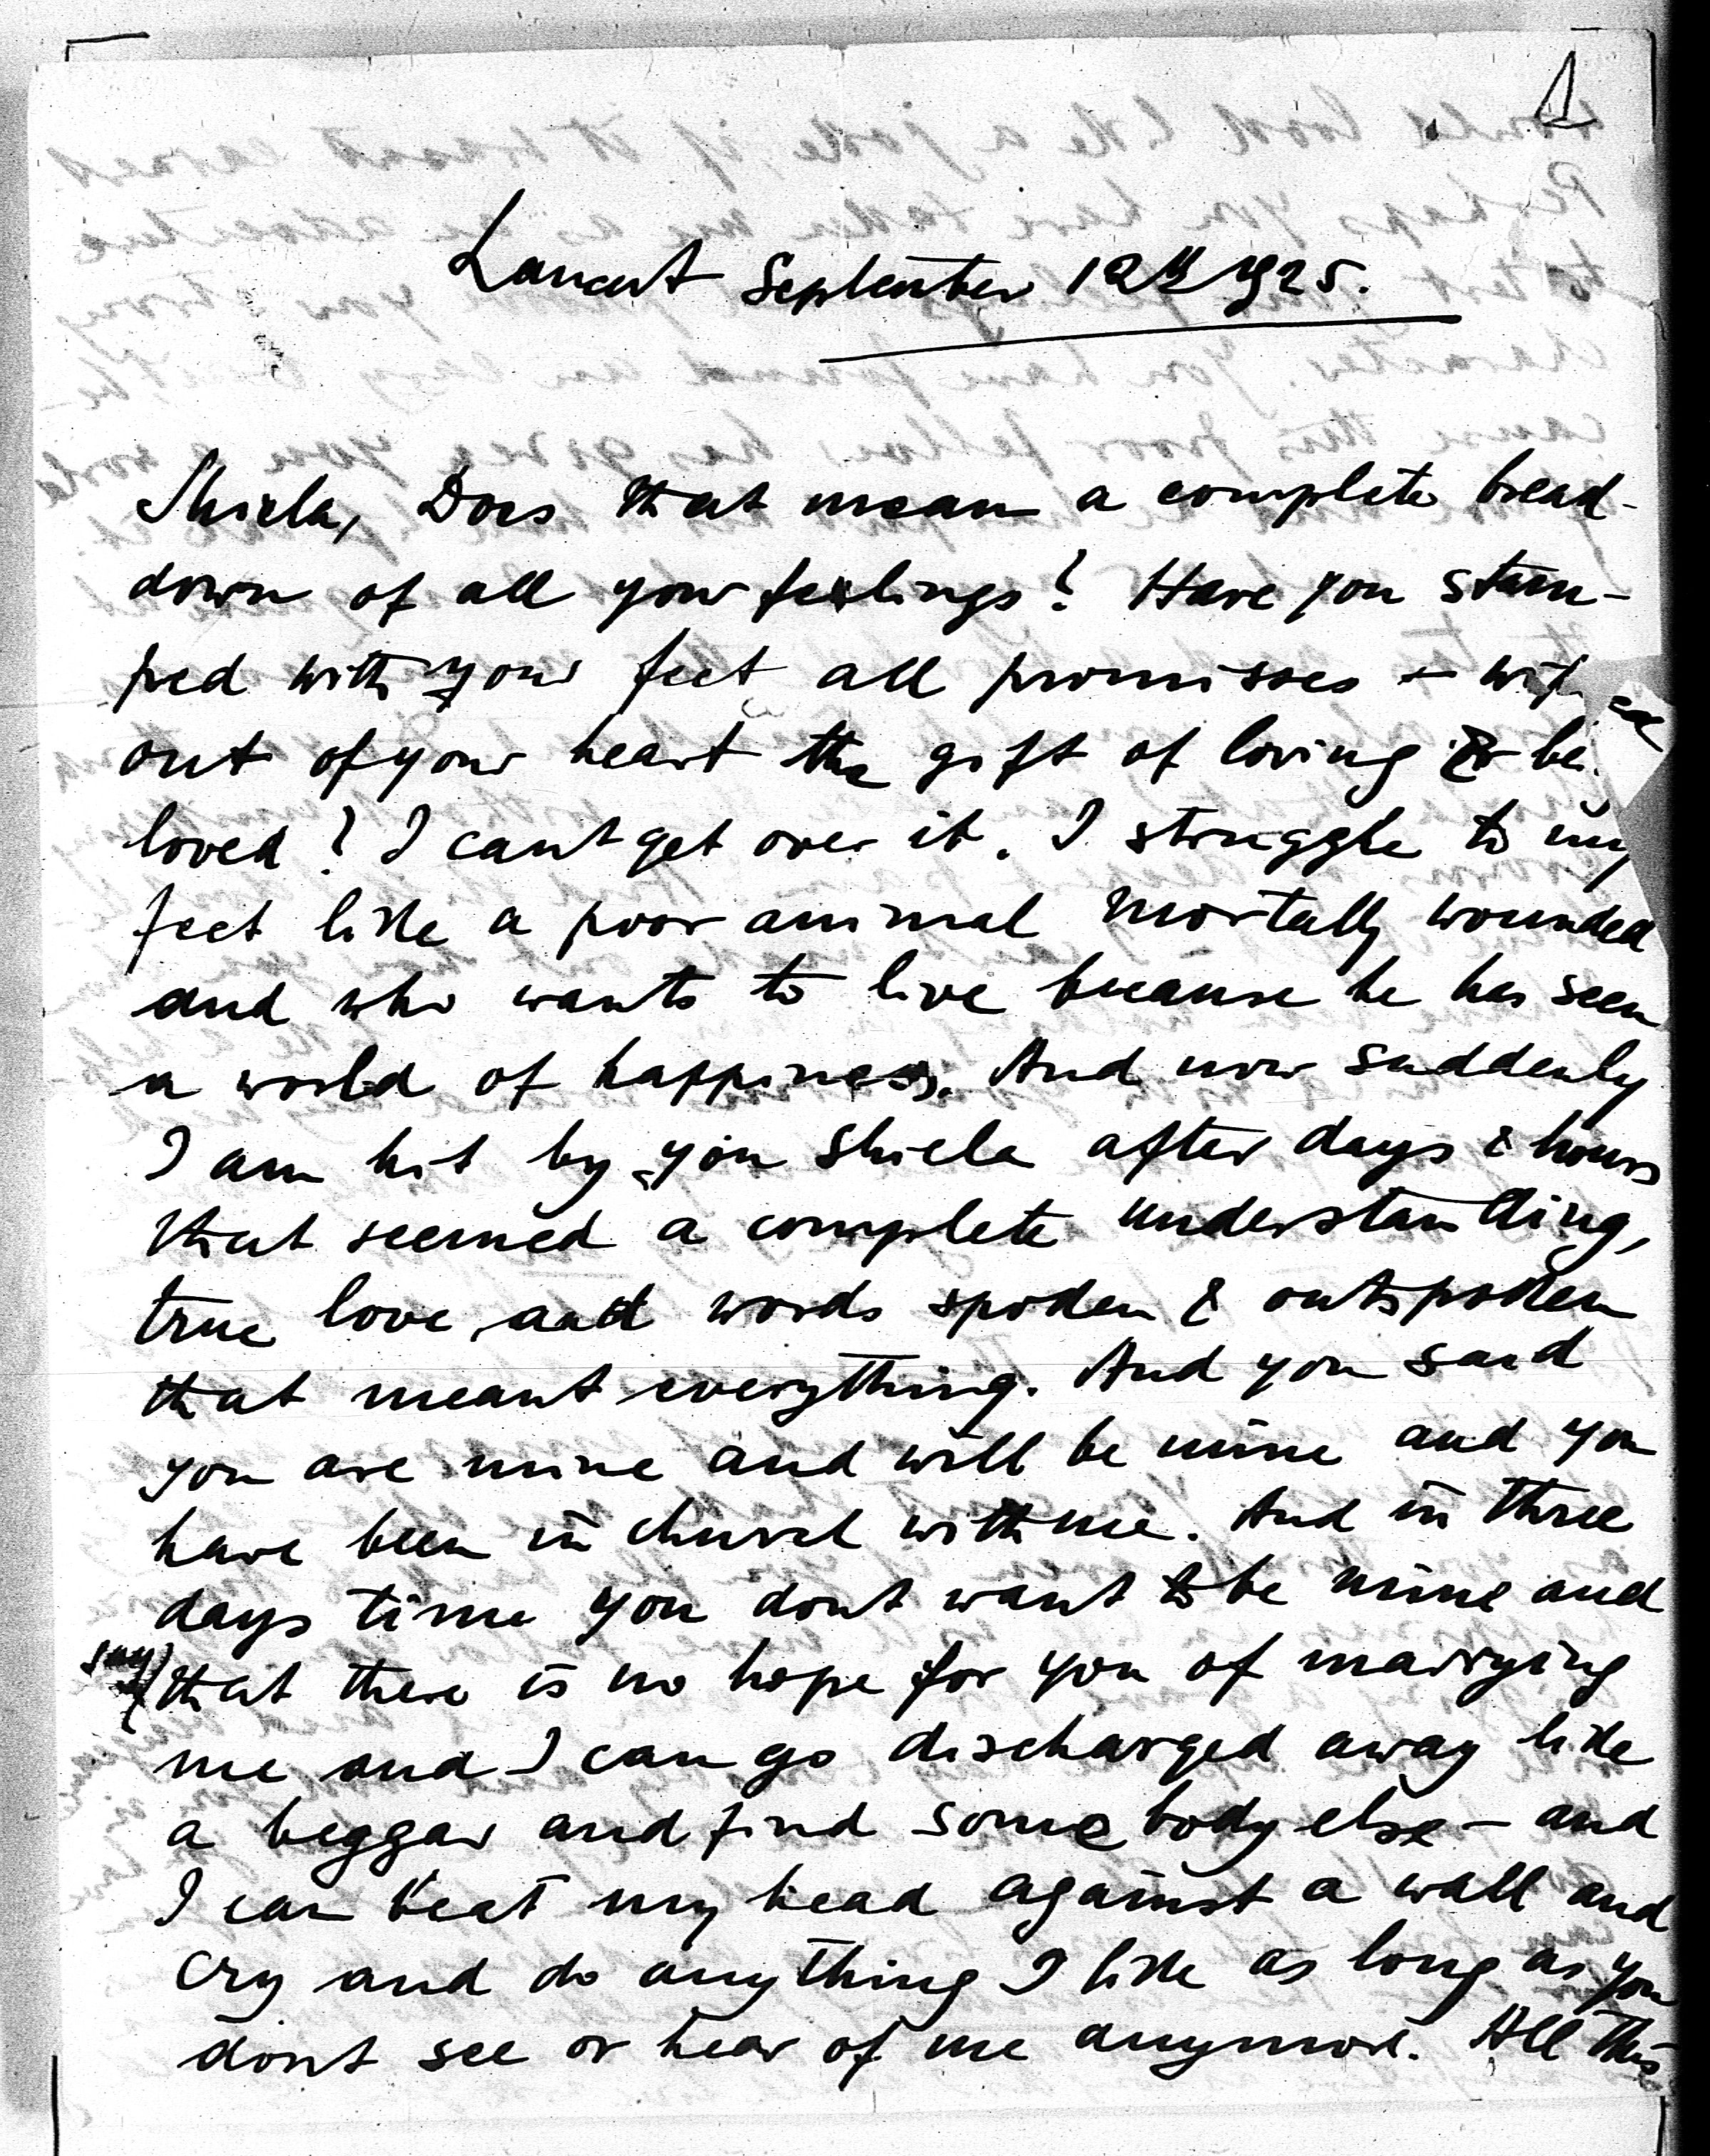 Lancut September 12th 1925.
Shiela, Does that mean a complete break-
down of all your feelings? Have you stam-
ped with your feet all promisses + wiped
out of your heart the gift of loving & be
loved? I cant get over it. I struggle to my
feet like a poor animal mortally wounded
and who wants to live because he has seen
a world of happiness. And now suddenly
I am hit by you Shiela after days & hours
that seemed a complete understanding,
true love and words spoken & outspoken
that meant everything. And you said
you are mine and will be mine and you
have been in church with me. And in three
days time you dont want to be mine and
say that there is no hope for you of marrying
me and I can go discharged away like
a beggar and find somebody else – and
I can beat my head against a wall and
cry and do anything I like as long as you
dont see or hear of me anymore. All this